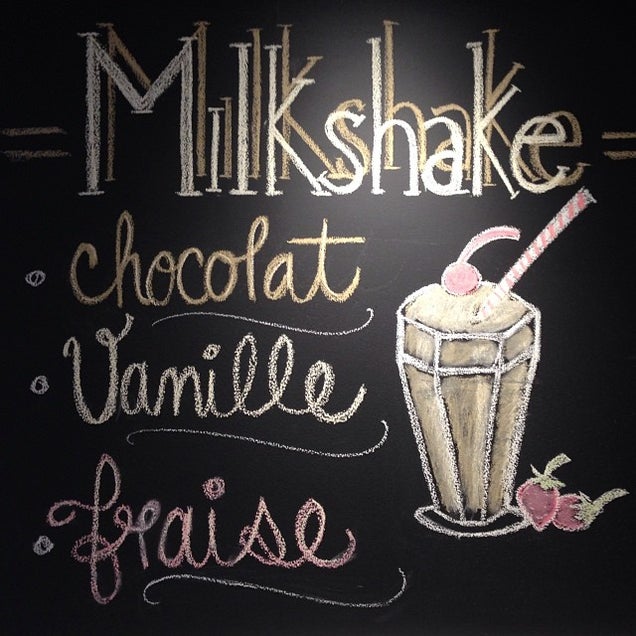 Milkshake
chocolat
Vanille
fraise